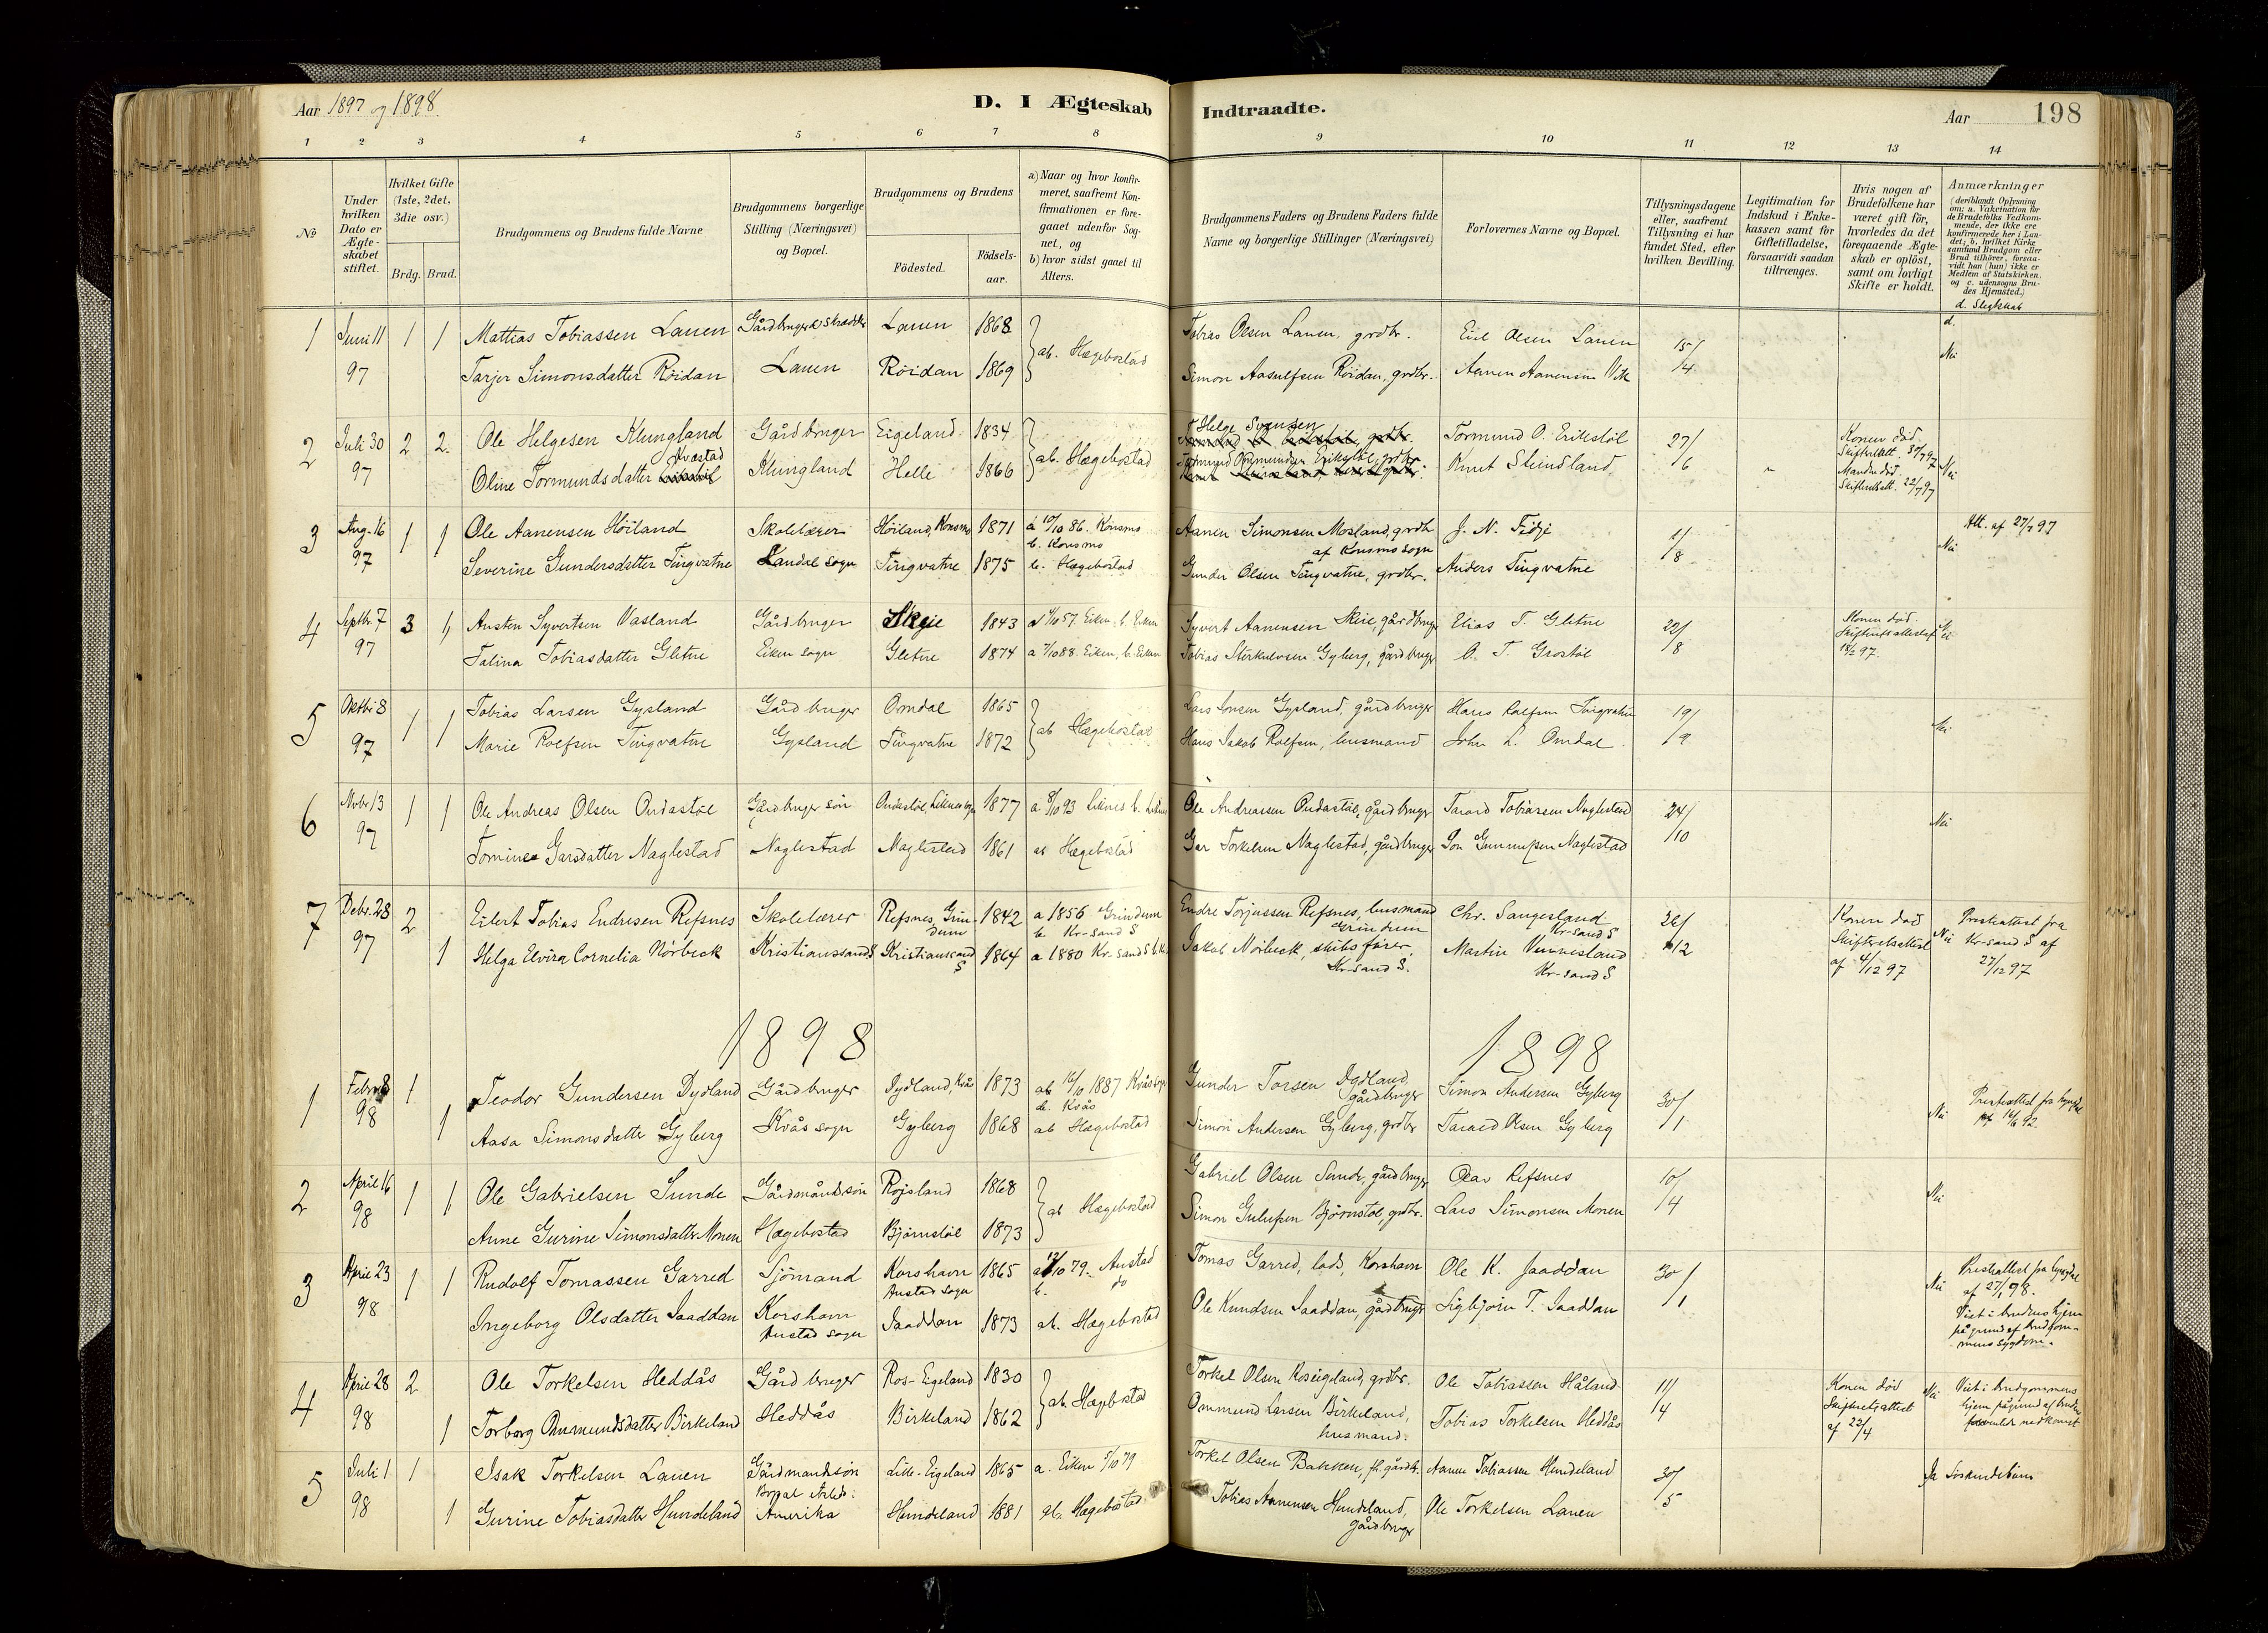 Aar 1897 og 1898.
D. I Ægteskab Indtraadte.
Aar
198
1 2 3 4 5 6 7 8 9 10 11 12 13 14
No
Under hvilken Dato er Ægteskabet stiftet.
Hvilket Gifte (1ste, 2det, 3die osv.)
Brdg. Brud.
Brudgommens og Brudens fulde Navne
Brudgommens borgerlige Stilling (Næringsvei) og Bopæl.
Brudgommens og Brudens
Födested.
Födsels-aar.
a) Naar og hvor konfir-
meret, saafremt Kon-
firmationen er fore-
gaaet udenfor Sog-
net, og
b) hvor sidst gaaet til
Alters.
Brudgommens Faders og Brudens Faders fulde
Navne og borgerlige Stillinger (Næringsvei)
Forlovernes Navne og Bopæl.
Tillysningsdagene
eller, saafremt
Tillysning ei har
fundet Sted, efter
hvilken Bevilling.
Legitimation for
Indskud i Enke-
kassen samt for
Giftetilladelse,
forsaavidt saadan
tiltrænges.
Hvis nogen af
Brudefolkene har
været gift för,
hvorledes da det
foregaaende Ægte-
skab er oplöst,
samt om lovligt
Skifte er holdt.
Anmærkninger
(deriblandt Oplysning
om: a. Vakcination for
de Brudefolks Vedkom-
mende, der ikke ere
konfirmerede her i Lan-
det; b. hvilket Kirke-
samfund Brudgom eller
Brud tilhörer, forsaa-
vidt han (hun) ikke er
Medlem af Statskirken,
og c. udensogns Bru-
des Hjemsted.)
d. Slegtskab
1 Juni 11 1 1 Mattias Tobiassen Lauen Gårdbruger & skrædder Lauen 1868 ab. Hægebostad Tobias Olsen Lauen, grdbr. Eil Olsen Lauen 15/4 d. Nei
97 Tarjer Simonsdatter Röidan Lauen Röidan 1869 Simon Aasulfsen Röidan, grdbr. Aanen Aanensen Vik
2 Juli 30 2 2 Ole Helgesen Klungland Gårdbruger Eigeland 1834 ab. Hægebostad Helge Svensen Tormund O. Erikstöl 27/6 Konen död. Nei
97 Oline Tormundsdatter Kvæstad Klungland Helle 1866 Tormund Ommundsen Erikstöl, grdbr. Knut Steindland Manden död. Skifteretsatt. 22/7 97
3 Aug. 16 1 1 Ole Aanensen Höiland Skolelærer Höiland, Konsmo 1871 a 10/10 86. Konsmo b. Konsmo Aanen Simonsen Mosland, grdbr. af Konsmo sogn J. N. Fidje 1/8 Nei Att. af 27/7 97
97 Severine Gundersdatter Tingvatne Landal sogn Tingvatne 1875 b. Hægebostad Gunder Olsen Tingvatne, grdbr. Anders Tingvatne
4 Septbr. 7 3 1 Austen Syvertsen Vasland Gårdbruger Skeie 1843 Eiken, b. Eiken Syvert Aanensen Skeie, gårdbruger Elias T. Gletne 22/8 Konen död. Skifteretsattest Nei
97 Talina Tobiasdatter Gletne Eiken sogn Gletne 1874 a 7/10 88. Eiken, b. Eiken Tobias Gyberg, gårdbruger O. T. Grostöl
5 Oktbr 8 1 1 Tobias Larsen Gysland Gårdbruger Omdal 1865 ab Hægebostad Lars Gysland, gårdbruger Hans Rolfsen Tingvatne 19/9 Nei
97 Marie Rolfsen Tingvatne Gysland Tingvatne 1872 Hans Jakob Rolfsen, husmand John L. Omdal
6 Nvbr 13 1 1 Ole Andreas Olsen Ondastöl Gårdbruger sön Ondastöl, 1877 Ole Andreassen Ondastöl, gårdbruger Tarald Tobiassen Naglestad 24/10 Nei
97 Tomine Garsdatter Naglestad Naglestad Naglestad 1861 ab Hægebostad Gar Torkelsen Naglestad, gårdbruger Naglestad
7 Debr. 28 2 Eilert Tobias Endresen Refsnes Skolelærer Refsnes, Grindum 1842 a 1856 Grindum b. Kr-sand S Endre Torjussen Refsnes, husmand Grindum Chr. Saugesland Kr-sand S 26/12 Konen död Skifteretsattest af 4/12 97 Nei Presteattest fra Kr-sand S af 27/12 97
97 1 Helga Elvira Cornelia Nörbeck Kristianssand S Kristianssand S 1864 a 1880 Kr-sand S Jakob Nörbeck, skibsförer, Kr-sand S. Martin Vennesland Kr-sand S
1898 1898
1 Febr 8 1 Teodor Gundersen Dydland Gårdbruger Dydland, Kvås 1873 1887 Kvås b. Kvås Gunder Torsen Dydland, gårdbruger Simon Andersen Gyberg 30/1 Nei Presteattest fra
98 1 Aasa Simonsdatter Gyberg Kvås sogn Gyberg 1868 ab Hægebostad Simon Andersen Gyberg, grdbr Tarald Olsen Gyberg
2 April 16 1 1 Ole Gabrielsen Sunde Gårdmandssön Röjsland 1868 ab Hægebostad Gabriel Olsen Sunde, gårdbruger Olav Refsnes 10/4 Nei
98 Anne Gurine Simonsdatter Monen Hægebostad Björnstöl 1873 Simon Björnstöl, grdbr. Lars Simonsen Monen
3 April 23 1 1 Rudolf Tomassen Garred Sjömand Korshavn Austad sogn 1865 a 12/10 79. Austad b. do Tomas Garred, lods, Korshavn Ole K. Jaaddan 30/1 Nei Presteattest fra Lyngdal af 27/1 98. Viet i brudens hjem på grund af brudgommens sygdom.
98 Ingeborg Olsdatter Jaaddan Korshavn Austad sogn Jaaddan 1873 ab. Hægebostad Ole Knudsen Jaaddan, gårdbruger Sigbjörn T. Jaaddan
4 April 28 2 Ole Torkelsen Heddås Gårdbruger Ros-Eigeland 1830 ab Hægebostad Torkel Olsen Roseigeland, grdbr. Ole Tobiassen Håland 11/4 Konen död Skifteretsattest af 22/4 Nei Viet i brudgommens hjem på grund af
98 1 Torborg Ommundsdatter Birkeland Heddås Birkeland 1862 Ommund Larsen Birkeland, husmand. Tobias Torkelsen Heddås
5 Juli 1 1 Isak Torkelsen Lauen Gårdmandssön Lille-Eigeland 1865 a. Eiken 5/10 79 Torkel Olsen Bakken, fh. gårdb. Aanen Tobiassen Hundeland 30/5 Ja Söskendebarn
98 1 Gurine Tobiasdatter Hundeland Amerika Hundeland 1881 ab. Hægebostad Tobias Aanensen Hundeland, gårdbruger Ole Torkelsen Lauen